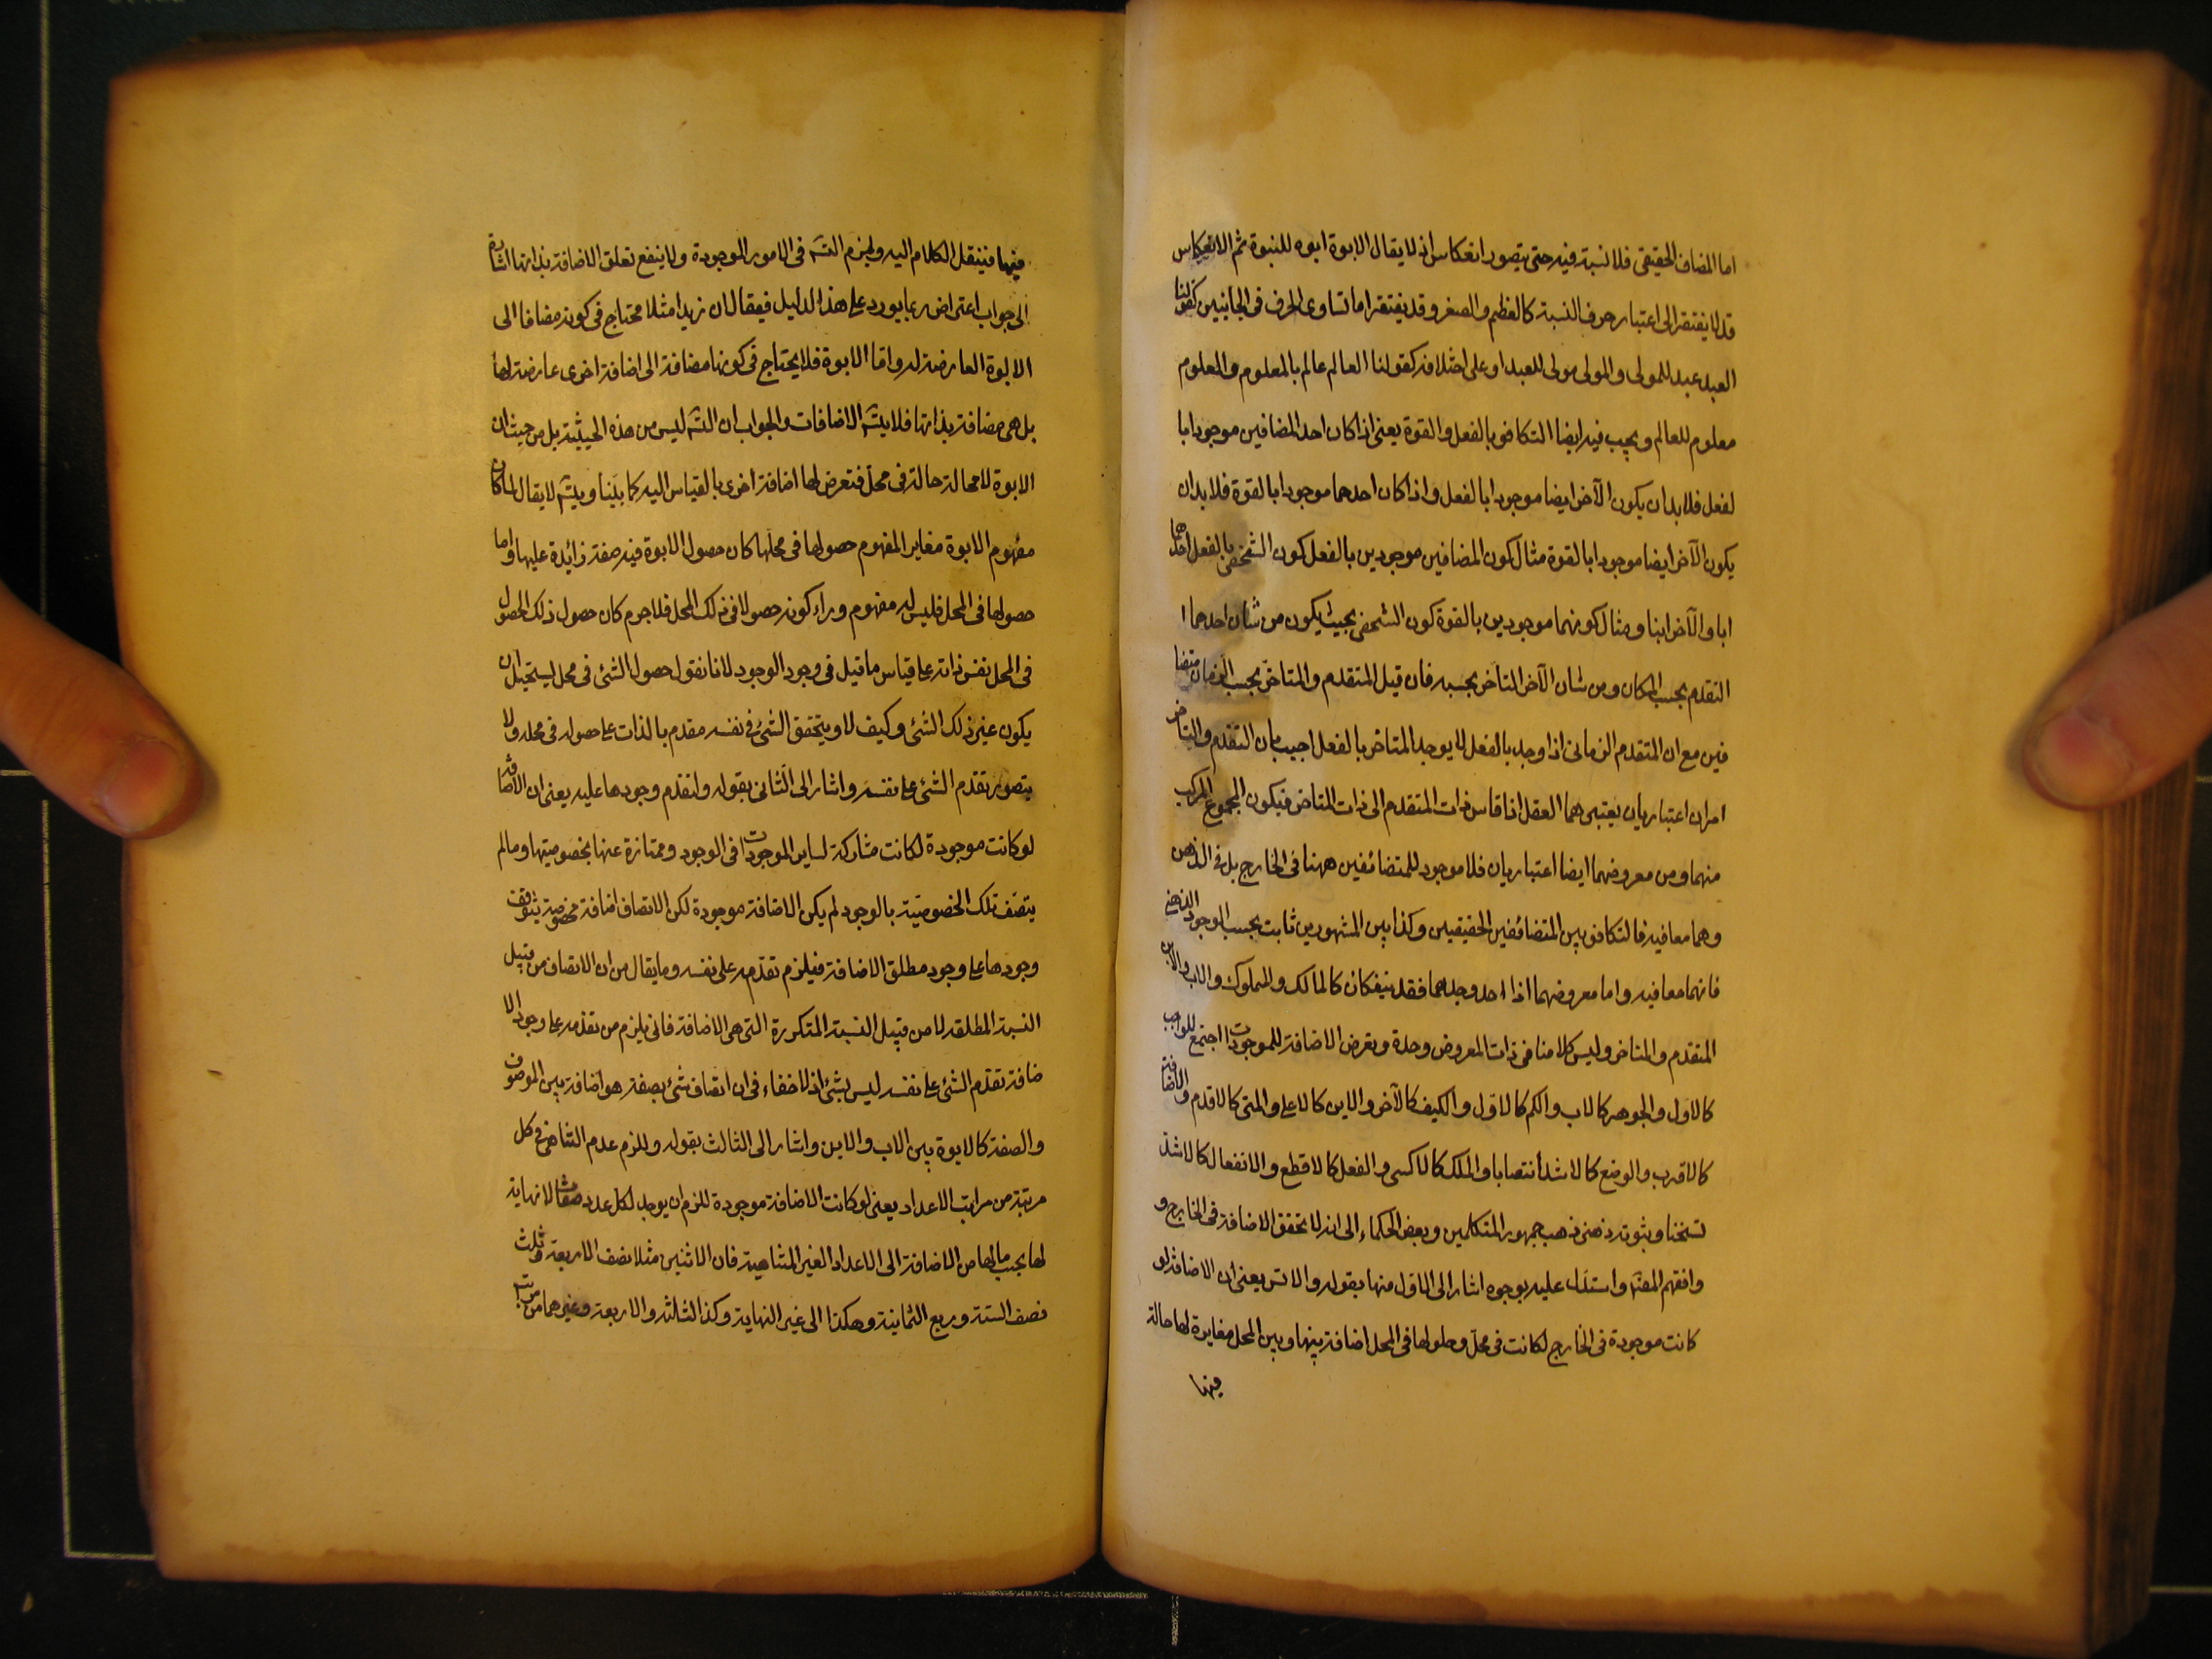 اما المضاف الحقيقى فلا نسبة فيه حتى يتصور انعكاس اذ لا يقال الابوة ابوه للبنوة ثم الانعكاس
قد لا يفتقر الى اعتبار حرف النسبة كالعظيم والصغير وقد يفتقر اما تساوى الحرف فى الجانبين كقولنا
العبد عبد للمولى والمولى مولى للعبد او على اختلافه كقولنا العالم عالم بالمعلوم والمعلوم
معلوم للعالم ويجب فيه ايضا التكافو بالفعل والقوة يعنى اذا كان احد المضافين موجودا با
لفعل فلا بد ان يكون الآخر ايضا موجودا بالفعل واذا كان احدهما موجودا بالقوة فلا بد ان
يكون الآخر ايضا موجودا بالقوة مثال كون المضافين موجودين بالفعل كون الشخص بالفعل احدهما
ابا والآخر ابنا ومثال كونهما موجودين بالقوة كون الشخص بحيث يكون من شان احدهما ا
التقدم بحسب المكان ومن شان الآخر المتأخر بحسبه فان قيل المتقدم والمتاخر بحسب الزمان متضا
فين مع ان المتقدم الزمانى اذا وجد بالفعل لا يوجد المتاخر بالفعل اجيب بان التقدم والتاخر
امران اعتباريان يعتبرهما العقل اذا قاس ذات المتقدم الى ذات المتاخر فيكون المجموع المركب
منهما ومن معروضهما ايضا اعتباريان فلا موجود للمتضائفين ههنا فى الخارج بل فى الذهن
وهما معا فيه فالتكافو بين المتضائفين الحقيقيين وكذا بين المشهورين ثابت بحسب الوجود الذهنى
فانهما معا فيه واما معروضهما اذا احد وجدهما فقد ينفكان كالمالك والمملوك والاب والابن
المتقدم والمتاخر وليس كلامنا فى ذات المعروض وحدة وتعرض الاضافة للموجودات اجمع للواجب
كالاول والجوهر كالاب والكم كالاقل والكيف كالآخر والاين كالاعلى والمتى كالاقدم والاضافة
كالاقرب والوضع كالاشد انتصابا والملك كالاكسى والفعل كالاقطع والانفعال كالاشد
تسخنا وثبوته ذهنى ذهب جمهور المتكلمين وبعض الحكماء الى انه لا تحقق الاضافة فى الخارج و
وافقهم المص واستدل عليه بوجوه اشار الى الاول منها بقوله والا تس يعنى ان الاضافة لو
كانت موجودة فى الخارج لكانت فى محل وحلولها فى المحل اضافة بينها وبين المحل مغايرة لها حالة
فيها
فيها فينتقل الكلام اليه ولزم التس فى الامور الموجودة ولا ينفع تعلق الاضافة بذاتها اشارة
الى جواب اعتراض ربما يورد على هذا الدليل فيقال ان زيدا مثلا محتاج فى كونه مضافا الى
الابوة العارضة له واما الابوة فلا يحتاج فى كونها مضافة الى اضافة اخرى عارضة لها
بل هى مضافة بذاتها فلا يتس الاضافات والجواب ان التس ليس من هذه الحيثية بل من حيث ان
الابوة لا محالة حالة فى محل فتعرض لها اضافة اخرى بالقياس اليه كما بينا ويتس لا يقال لما كان
مفهوم الابوة مغاير المفهوم حصولها فى محلها كان حصول الابوة فيه صفة زائدة عليها واما
حصولها فى المحل فليس له مفهوم وراء كونه حصولا فى ذلك المحل فلا جرم كان حصول ذلك الحصول
فى المحل نفس ذاته على قياس ما قيل فى وجود الوجود لانا نقول حصول الشئ فى محل يستحيل ان
يكون عين ذلك الشئ وكيف لا ويتحقق الشئ فى نفسه مقدم بالذات على حصوله فى محله ولا
يتصور تقدم الشئ على نفسه واشار الى الثانى بقوله ولتقدم وجودها عليه يعنى ان الاضافة
لو كانت موجودة لكانت مشاركة لساير الموجودات فى الوجود وممتازة عنها بخصوصيتها وما لم
يتصف تلك الخصوصية بالوجود لم يكن الاضافة موجودة لكن الاتصاف اضافة مخصوصة يتوقف
وجودها على وجود مطلق الاضافة فيلزم تقدمه على نفسه وما يقال من ان الاتصاف من قبيل
النسبة المطلقة لا من قبيل النسبة المتكررة التى هى الاضافة فانى يلزم من تقدمه على وجود الا
ضافة تقدم الشئ على نفسه ليس بشئ اذ لا خفاء فى ان اتصاف شئ بصفة هو اضافة بين الموصوف
والصفة كالابوة بين الاب والابن واشار الى الثالث بقوله وللزم عدم التناهى فى كل
مرتبة من مراتب الاعداد يعنى لو كانت الاضافة موجودة للزم ان يوجد لكل عدد صفات لا نهاية
لها بحسب ما لها من الاضافة الى الاعداد الغير المتناهية فان الاثنين مثلا نصف الاربعة وثلث
نصف الستة وربع الثمانية وهكذا الى غير النهاية وكذا الثلثة والاربعة وغيرهما من مرتب